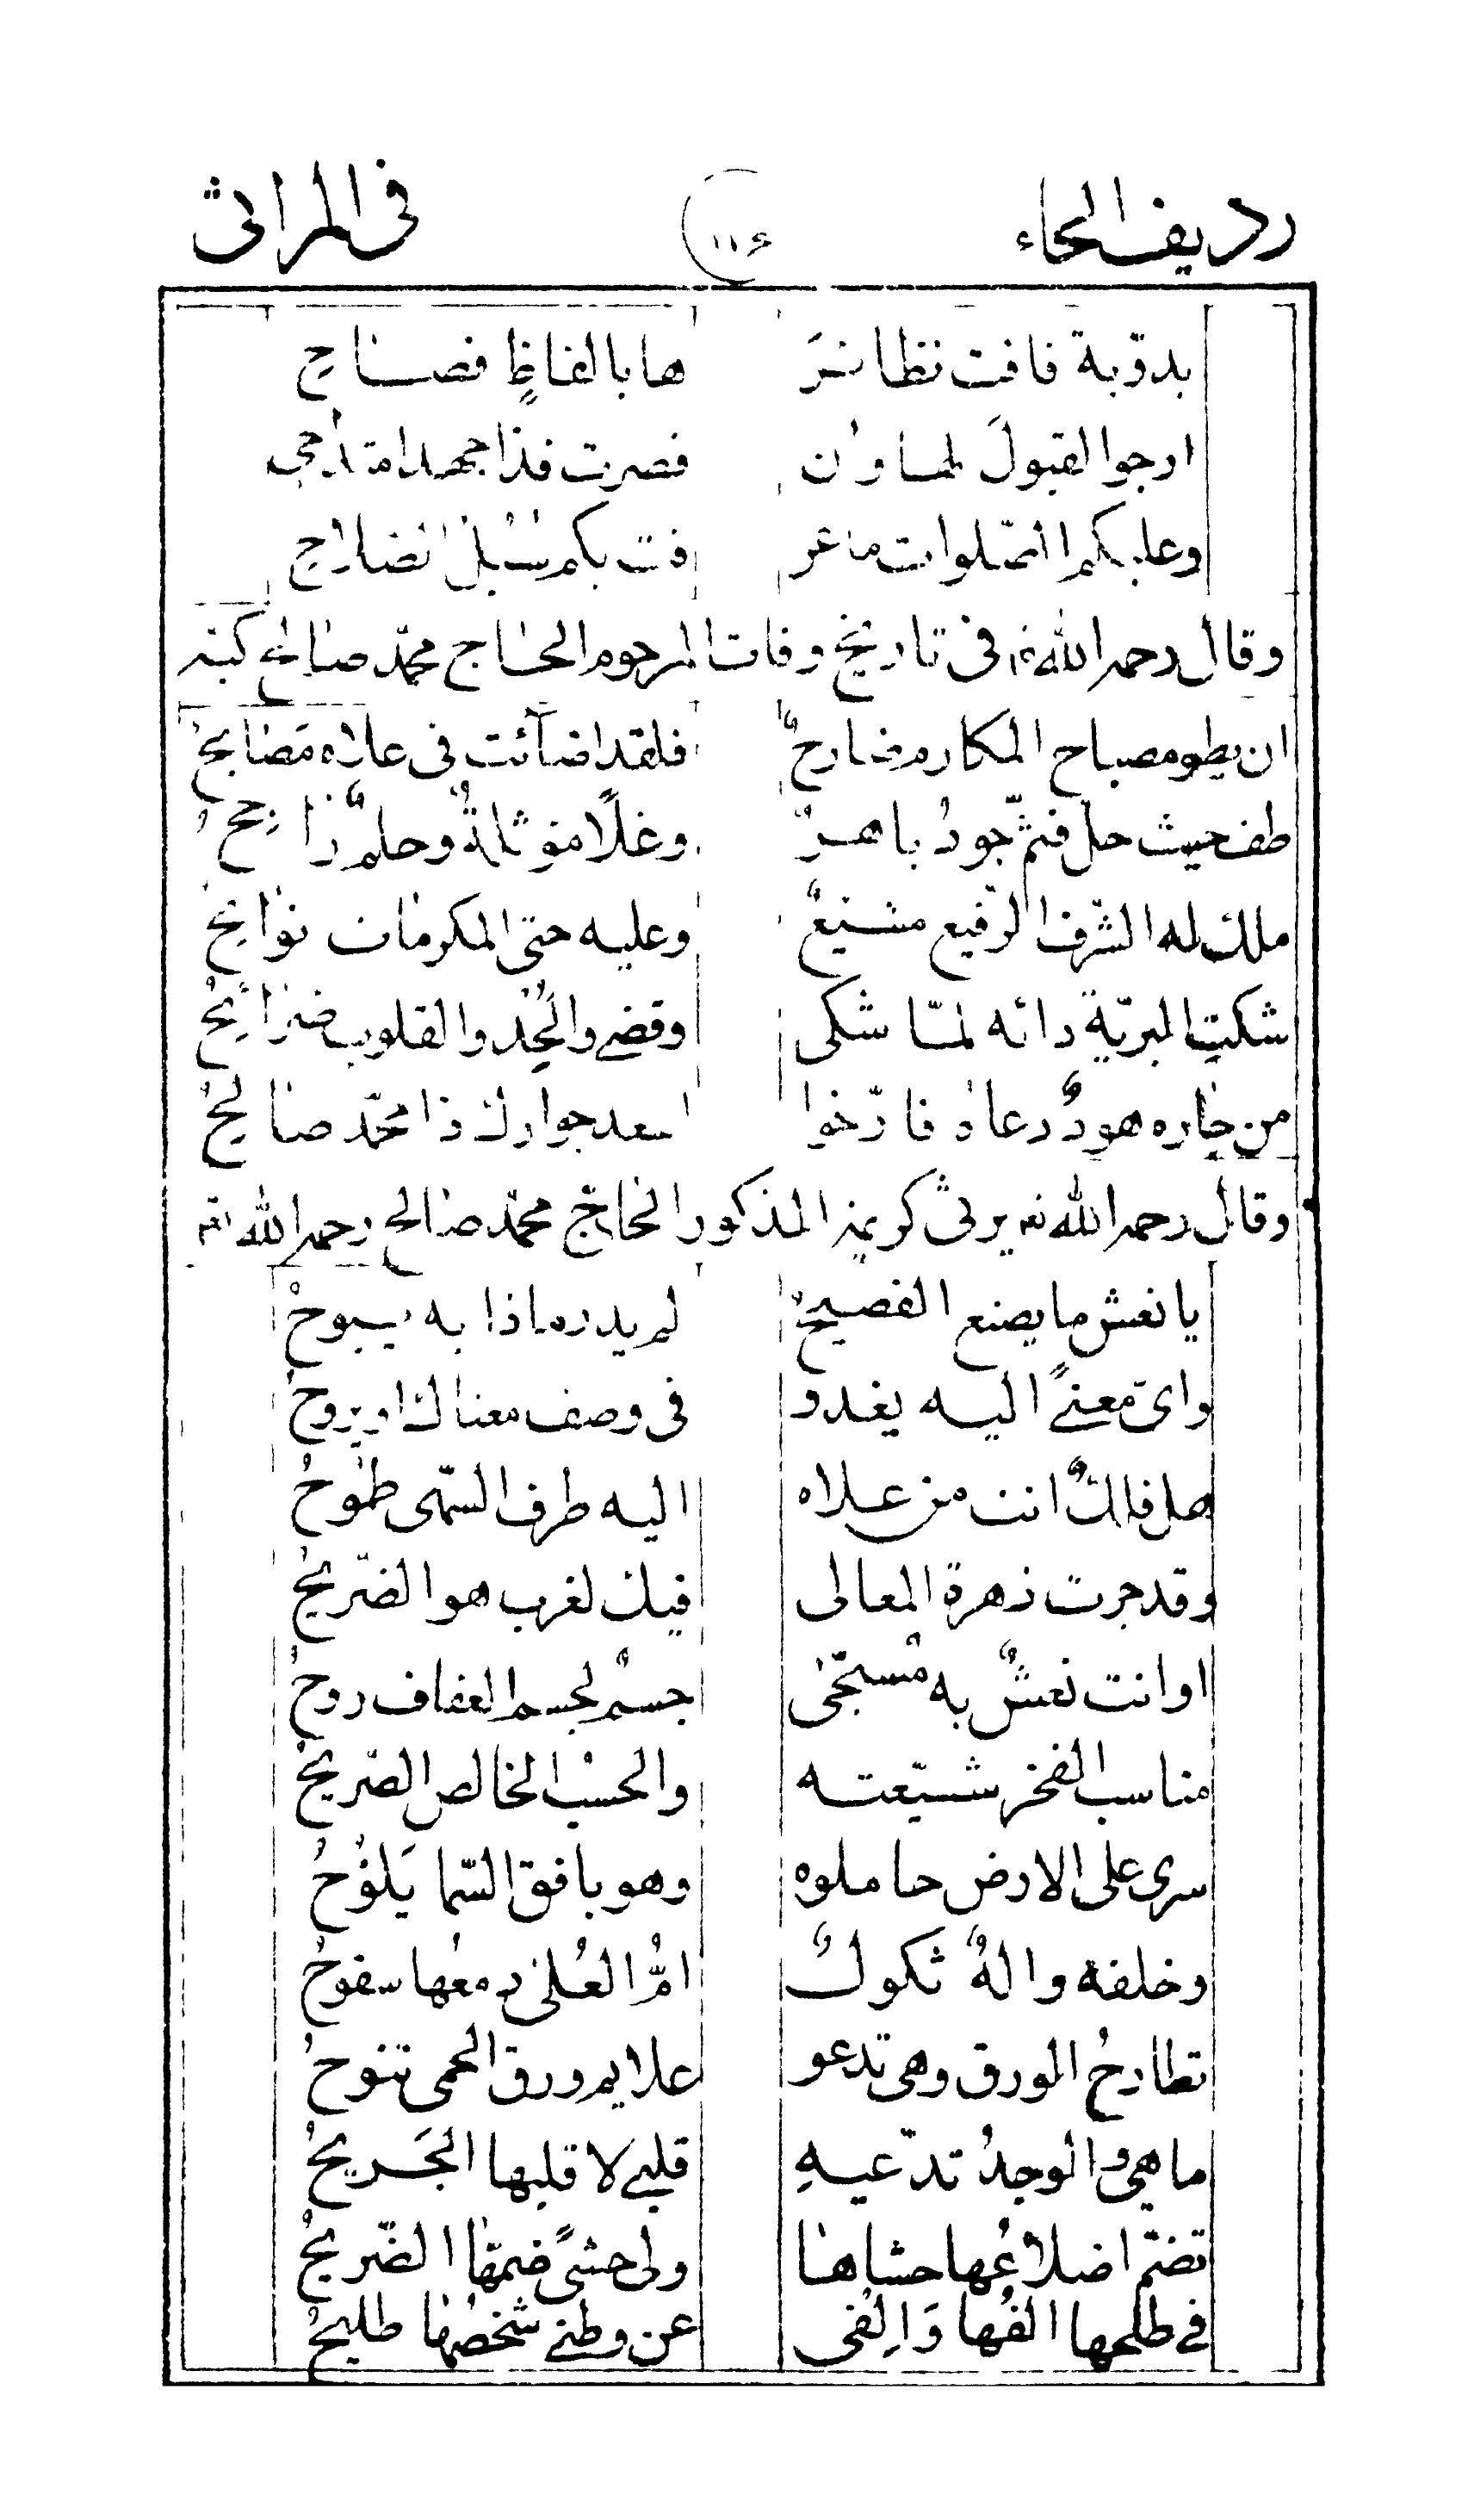 رديف الحاء ١١٦ فى المراثى
بدوية فاقت نظائر ها بالفاظٍ فصاح
ارجوا القبولَ لها وان قصرت فذا جهد امتداحى
وعليكم الصّلوات ما عر فت بكم سُبُل الصلاح
وقال رحمه الله فى تاريخ وفات المرحوم الحاج محمّد صالح كبّه
ان يطو مصباح المكارم ضارحٌ فلقد اضآئت فى علاه مصابحُ
طف حيث حلّ فثمّ جودٌ باهرٌ وعُلاً مؤثلةٌ وحلمٌ راجحُ
ملك له الشّرف الرّفيع مشيّعٌ وعليه حتى المكرمات نوائحُ
شكت البريّة دائه لمّا شكى وقضى والحُد والقلوب ضرائحُ
من جاره هودٌ دعاه فارّخوا اسعد جوارك ذا محمّد صالحُ
وقال رحمه الله يرثى كريمة المذكور الحاج محمّد صالح رحمه الله
يا نعش ما يصنع الفصيحُ لم يدر ماذا به يبوحُ
واىّ معنىً اليه يغدو فى وصف معناك او يروحُ
هل فلكٌ انت من علاه اليه طرف السّهى طموحُ
وقد جرت زهرة المعالى فيك لغرب هو الضّريحُ
او انت نعشٌ به مُسجّى جسمٌ لجسم العفاف روحُ
مناسب الفخر شيّعته والحسب الخالص الصّريحُ
سرى على الارض حاملوه وهو بافق السّما يَلوُحُ
وخلفه والهٌ ثكولٌ امُّ العُلى دمعُها سفوحُ
تطارحُ الورق وهى تدعو علايم ورق الحمى تنوحُ
ما هى والوجدُ تدّعيهِ قلبى لا قلبها الجَريحُ
تضمّ اضلاعُها حشاها ولى حشىً ضمّها الضّريحُ
فى طلحها الفُها وَاِلفى عن وطنى شخصُها طليحُ